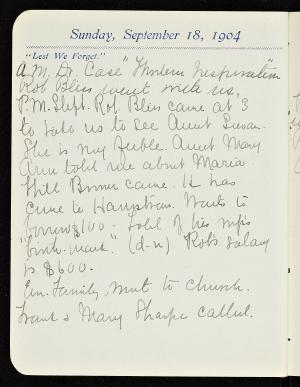 Sunday, September 18, 1904
"Lest We Forget."
A.M. Dr. Case "Modern Inspiration"
Rob Bliss went with us,
P.M. Slept. Rob Bliss came at 3
to take us to see Aunt Susan.
She is very feeble. Aunt Mary
Ann told me about Maria.
Will came. He has
gone to Wants to
borrow $100. Told of his wife's
"birth-mark." (d-n) Rob's salary
is $600.
Ev. Family, went to church.
Frank & Mary Sharpe called.